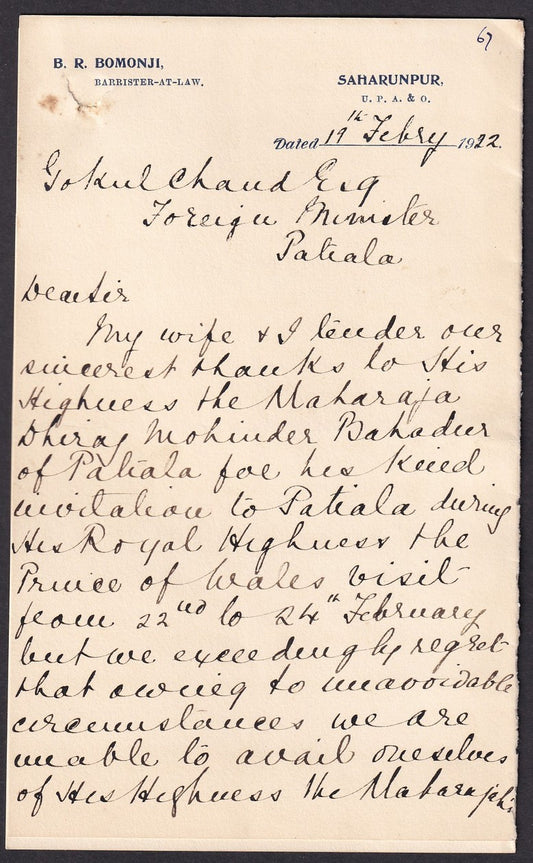 67
B. R. BOMONJI,
BARRISTER-AT-LAW.
SAHARUNPUR,
U. P. A. & O.
Dated 19th Febry 1922.
Gokul Chand Esq
Foreign Minister
Patiala
Dear Sir
My wife & I tender our
sincerest thanks to His
Highness the Maharaja
Dhiraj Mohinder Bahadur
of Patiala for his kind
invitation to Patiala during
His Royal Highness the
Prince of Wales visit
from 22nd to 24th February
but we exceedingly regret
that owing to unavoidable
circumstances we are
unable to avail ourselves
of His Highness the Maharajah's